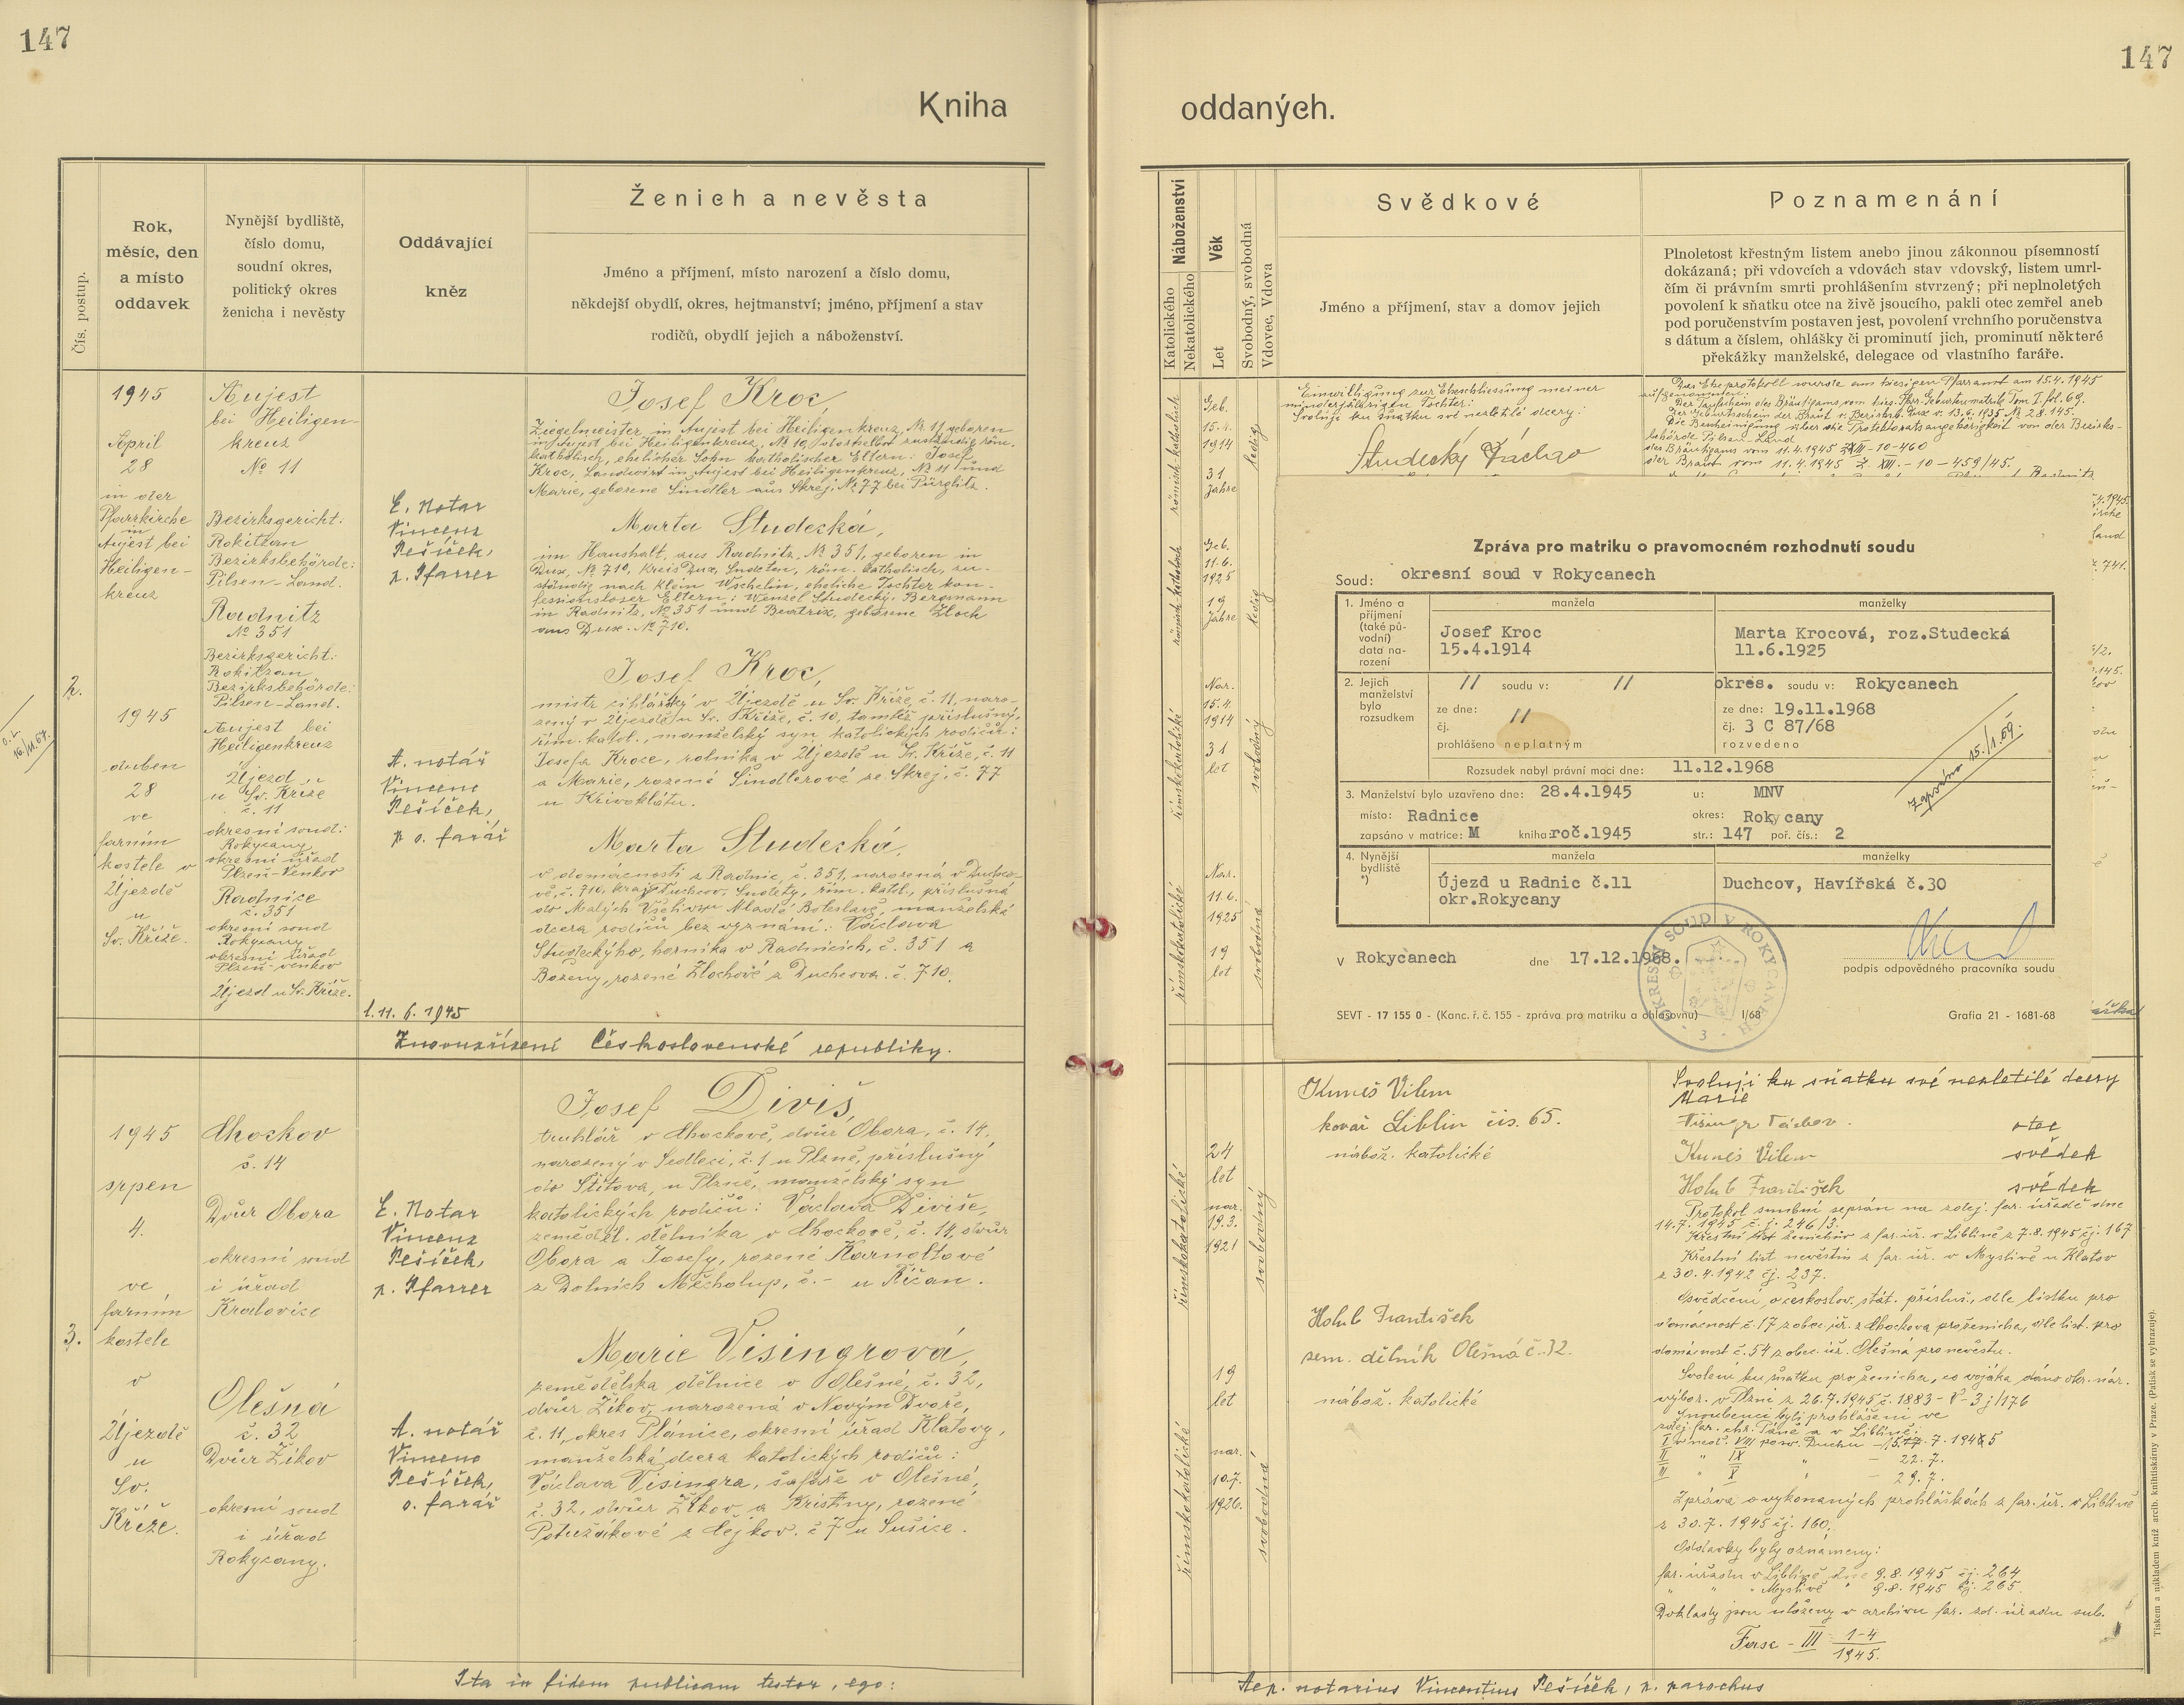 147
147
Kniha
oddaných.
Čís. postup.
Rok,
měsíc, den
a místo
oddavek
Nynější bydliště,
číslo domu,
soudní okres,
politický okres
ženicha i nevěsty
Oddávající
kněz
Ženich a nevěsta
Jméno a příjmení, místo narození a číslo domu,
někdejší obydlí, okres, hejtmanství; jméno, příjmení a stav
rodičů, obydlí jejich a náboženství.
2.
1945
April
28
in der
Pfarrkirche
in
Aujest bei
Heiligen-
kreuz
1945
duben
28
ve
farním
kostele v
Újezdě
u
Sv. Kříže.
Aujest
bei Heiligen-
kreuz
No 11
Bezirksgericht:
Rokitzan
Bezirksbehörde:
Pilsen-Land.
Radnitz
No 351
Bezirksgericht:
Rokitzan
Bezirksbehörde:
Pilsen-Land.
Aujest bei
Heiligenkreuz
Újezd
u Sv. Kříže
č. 11
okresní soud:
Rokycany
okresní úřad
Plzeň-Venkov
Radnice
č. 351
okresní soud
Rokycany
okresní úřad
Plzeň-venkov
Újezd u Sv. Kříže.
E. Notar
Vincenz
Pešíček,
p. Pfarrer
A. notář
Vincenc
Pešíček,
p. o. farář
Josef Kroc,
Ziegelmeister in Aujest bei Heiligenkreuz, No 11, geboren
in Aujest bei Heiligenkreuz, No 10, daselbst zuständig, röm.
katholisch, ehelicher Sohn katholischer Eltern: Josef
Kroc, Landwirt in Aujest bei Heiligenkreuz, No 11 und
Marie, geborene Šindler aus Skrej, No 77 bei Pürglitz.
Marta Studecká,
im Haushalt, aus Radnitz, No 351, geboren in
Dux, No 710, Kreis Dux, Sudeten, röm. katholisch, zu-
ständig nach Klein Wschelin, eheliche Tochter kon-
fessionsloser Eltern: Wenzel Studecký, Bergmann
in Radnitz, No 351 und Beatrix, geborene Zloch
aus Dux. No 710.
Josef Kroc,
mistr cihlářský v Újezdě u Sv. Kříže, č. 11, naro-
zený v Újezdě u Sv. Kříže, č. 10, tamtéž příslušný,
řím. katol., manželský syn katolických rodičů:
Josefa Kroce, rolníka v Újezdě u Sv. Kříže, č. 11
a Marie, rozené Šindlerové ze Skrej, č. 77
u Křivoklátu.
Marta Studecká,
v domácnosti z Radnic, č. 351, narozená v Duchco-
vě, č. 710, kraj Duchcov, Sudety, řím. katol., příslušná
do Malých Všelis u Mladé Boleslavě, manželská
dcera rodičů bez vyznání: Václava
Studeckýho, horníka v Radnicích, č. 351 a
Boženy, rozené Zlochové z Duchcova. č. 710.
11. 6. 1945
Znovuzřízení Československé republiky.
3.
1945
srpen
4.
ve
farním
kostele
v
Újezdě
u
Sv.
Kříže.
Chockov
č. 14
Dvůr Obora
okresní soud
i úřad
Kralovice
Olešná
č. 32
Dvůr Žikov
okresní soud
i úřad
Rokycany.
E. Notar
Vincenz
Pešíček,
p. Pfarrer
A. notář
Vincenc
Pešíček,
o. farář
Josef Diviš,
truhlář v Chockově, dvůr Obora, č. 14,
narozený v Sedleci, č. 1 u Plzně, příslušný
do Štítova, u Plzně, manželský syn
katolických rodičů: Václava Diviše,
zeměděl. dělníka v Chockově, č. 14, dvůr
Obora a Josefy, rozené Karnoltové
z Dolních Měcholup, č. - u Říčan.
Marie Visingrová,
zemědělská dělnice v Olešné, č. 32,
dvůr Žikov, narozená v Novým Dvoře,
č. 11, okres Plánice, okresní úřad Klatovy,
manželská dcera katolických rodičů:
Václava Visingra, šafáře v Olešné,
č. 32, dvůr Žikov a Kristiny, rozené
Potužákové z Čejkov. č 7 u Sušice.
Ita in fidem publicam testor, ego:
Náboženství
Katolického
Nekatolického
Věk
Let
Svobodný, svobodná
Vdovec, Vdova
Svědkové
Jméno a příjmení, stav a domov jejich
Poznamenání
Plnoletost křestným listem anebo jinou zákonnou písemností
dokázaná; při vdovcích a vdovách stav vdovský, listem umrl-
čím či právním smrti prohlášením stvrzený; při neplnoletých
povolení k sňatku otce na živě jsoucího, pakli otec zemřel aneb
pod poručenstvím postaven jest, povolení vrchního poručenstva
s dátum a číslem, ohlášky či prominutí jich, prominutí některé
překážky manželské, delegace od vlastního faráře.
römisch-katholisch
Geb.
15.4.
1914
31
Jahre
ledig
römisch-katholisch
Geb.
11.6.
1925
19
Jahre
ledig
římskokatolické
Nar.
15.4.
1914
31
let
svobodný
římskokatolické
Nar.
11.6.
1925
19
let
svobodná
Einwilligung zur Eheschliessung meiner
minderjährigen Tochter:
Svoluji ku sňatku své nezletilé dcery:
Das Eheprotokoll wurde am hiesigen Pfarramt am 15.4.1945
aufgenommen.
Der Taufschein des Bräutigams vom hies. Pfarr. Geburtenmatrik Tom I. fol. 69.
Der Geburtschein der Braut v. Bezirksb. Dux v. 13.6.1935 No 28.145.
Die Bescheinigung über die Protektoratsangehörigkeit von der Bezirks-
behörde Pilsen-Land
des Bräutigams vom 11.4.1945 Z. XIII-10-460
der Braut vom 11.4.1945 Z. XIII.-10-459/45.
Zpráva pro matriku o pravomocném rozhodnutí soudu
Soud: okresní soud v Rokycanech
1. Jméno a
příjmení
(také pů-
vodní)
data na-
rození
manžela
Josef Kroc
15.4.1914
manželky
Marta Krocová, roz.Studecká
11.6.1925
2. Jejich
manželství
bylo
rozsudkem
// soudu v: //
ze dne:
čj. //
prohlášeno neplatným
okres. soudu v: Rokycanech
ze dne: 19.11.1968
čj. 3 C 87/68
rozvedeno
Zapsáno 15./1.69.
Rozsudek nabyl právní moci dne: 11.12.1968
3. Manželství bylo uzavřeno dne: 28.4.1945 u: MNV
místo: Radnice okres: Rokycany
zapsáno v matrice: M kniha roč.1945 str.: 147 poř. čís.: 2
4. Nynější
bydliště
*)
manžela
Újezd u Radnic č.11
okr.Rokycany
manželky
Duchcov, Havířská č.30
V Rokycanech dne 17.12.1968.
OKRESNÍ SOUD V ROKYCANECH
- 3 -
podpis odpovědného pracovníka soudu
SEVT - 17 155 0 - (Kanc. ř. č. 155 - zpráva pro matriku a ohlašovnu) I/68
Grafia 21 - 1681-68
římskokatolické
24
let
nar.
19.3.
1921
svobodný
římskokatolické
19
let
nar.
10.7.
1926.
svobodná
Kuneš Vilem
kovář Liblin čis. 65.
nábož. katolické
Holub František
zem. dělník Olešná č. 32.
nábož. katolické
Svoluji ku sňatku své nezletilé dcery
Marie
otec
Kuneš Vilem svědek
Holub František svědek
Protokol snubní sepsán na zdej. far. úřadě dne
14.7.1945 č.j. 246/3.
Křestní list ženichův z far. úř. v Liblíně z 7.8.1945 čj. 167
Křestní list nevěstin z far. úř. v Myslivě u Klatov
z 30.4.1942 čj. 237.
Osvědčení o českoslov. stát. přísluš., dle lístku pro
domácnost č. 17 z obec. úř. z Chockova pro ženicha, dle list. pro
domácnost č. 54 z obec. úř. Olešná pro nevěstu.
Svolení ku sňatku pro ženicha, co vojáka dáno okr. nár.
výbor. v Plzni z 26.7.1945 č. 1883-V-3j/176
Snoubenci byli prohlášeni ve
zdej. far. chr. Páně a v Liblíně:
I v neděl. VIII po sv. Duchu - 15. 7. 1945
II " IX " - 22. 7.
III " X " - 29. 7.
Zpráva o vykonaných prohláškách z far. úř. v Liblíně
z 30.7.1945 čj. 160.
Oddavky byly oznámeny:
far. úřadu v Liblíně dne 9.8.1945 čj. 264
" " " Myslivě " 9.8.1945 čj. 265.
Doklady jsou uloženy v archivu far. zd. úřadu sub.
Fasc - III 1-4
1945.
Aep. notarius Vincentius Pešíček, p. parochus
Tiskem a nákladem kníž. arcib. knihtiskárny v Praze. (Patisk se vyhrazuje).